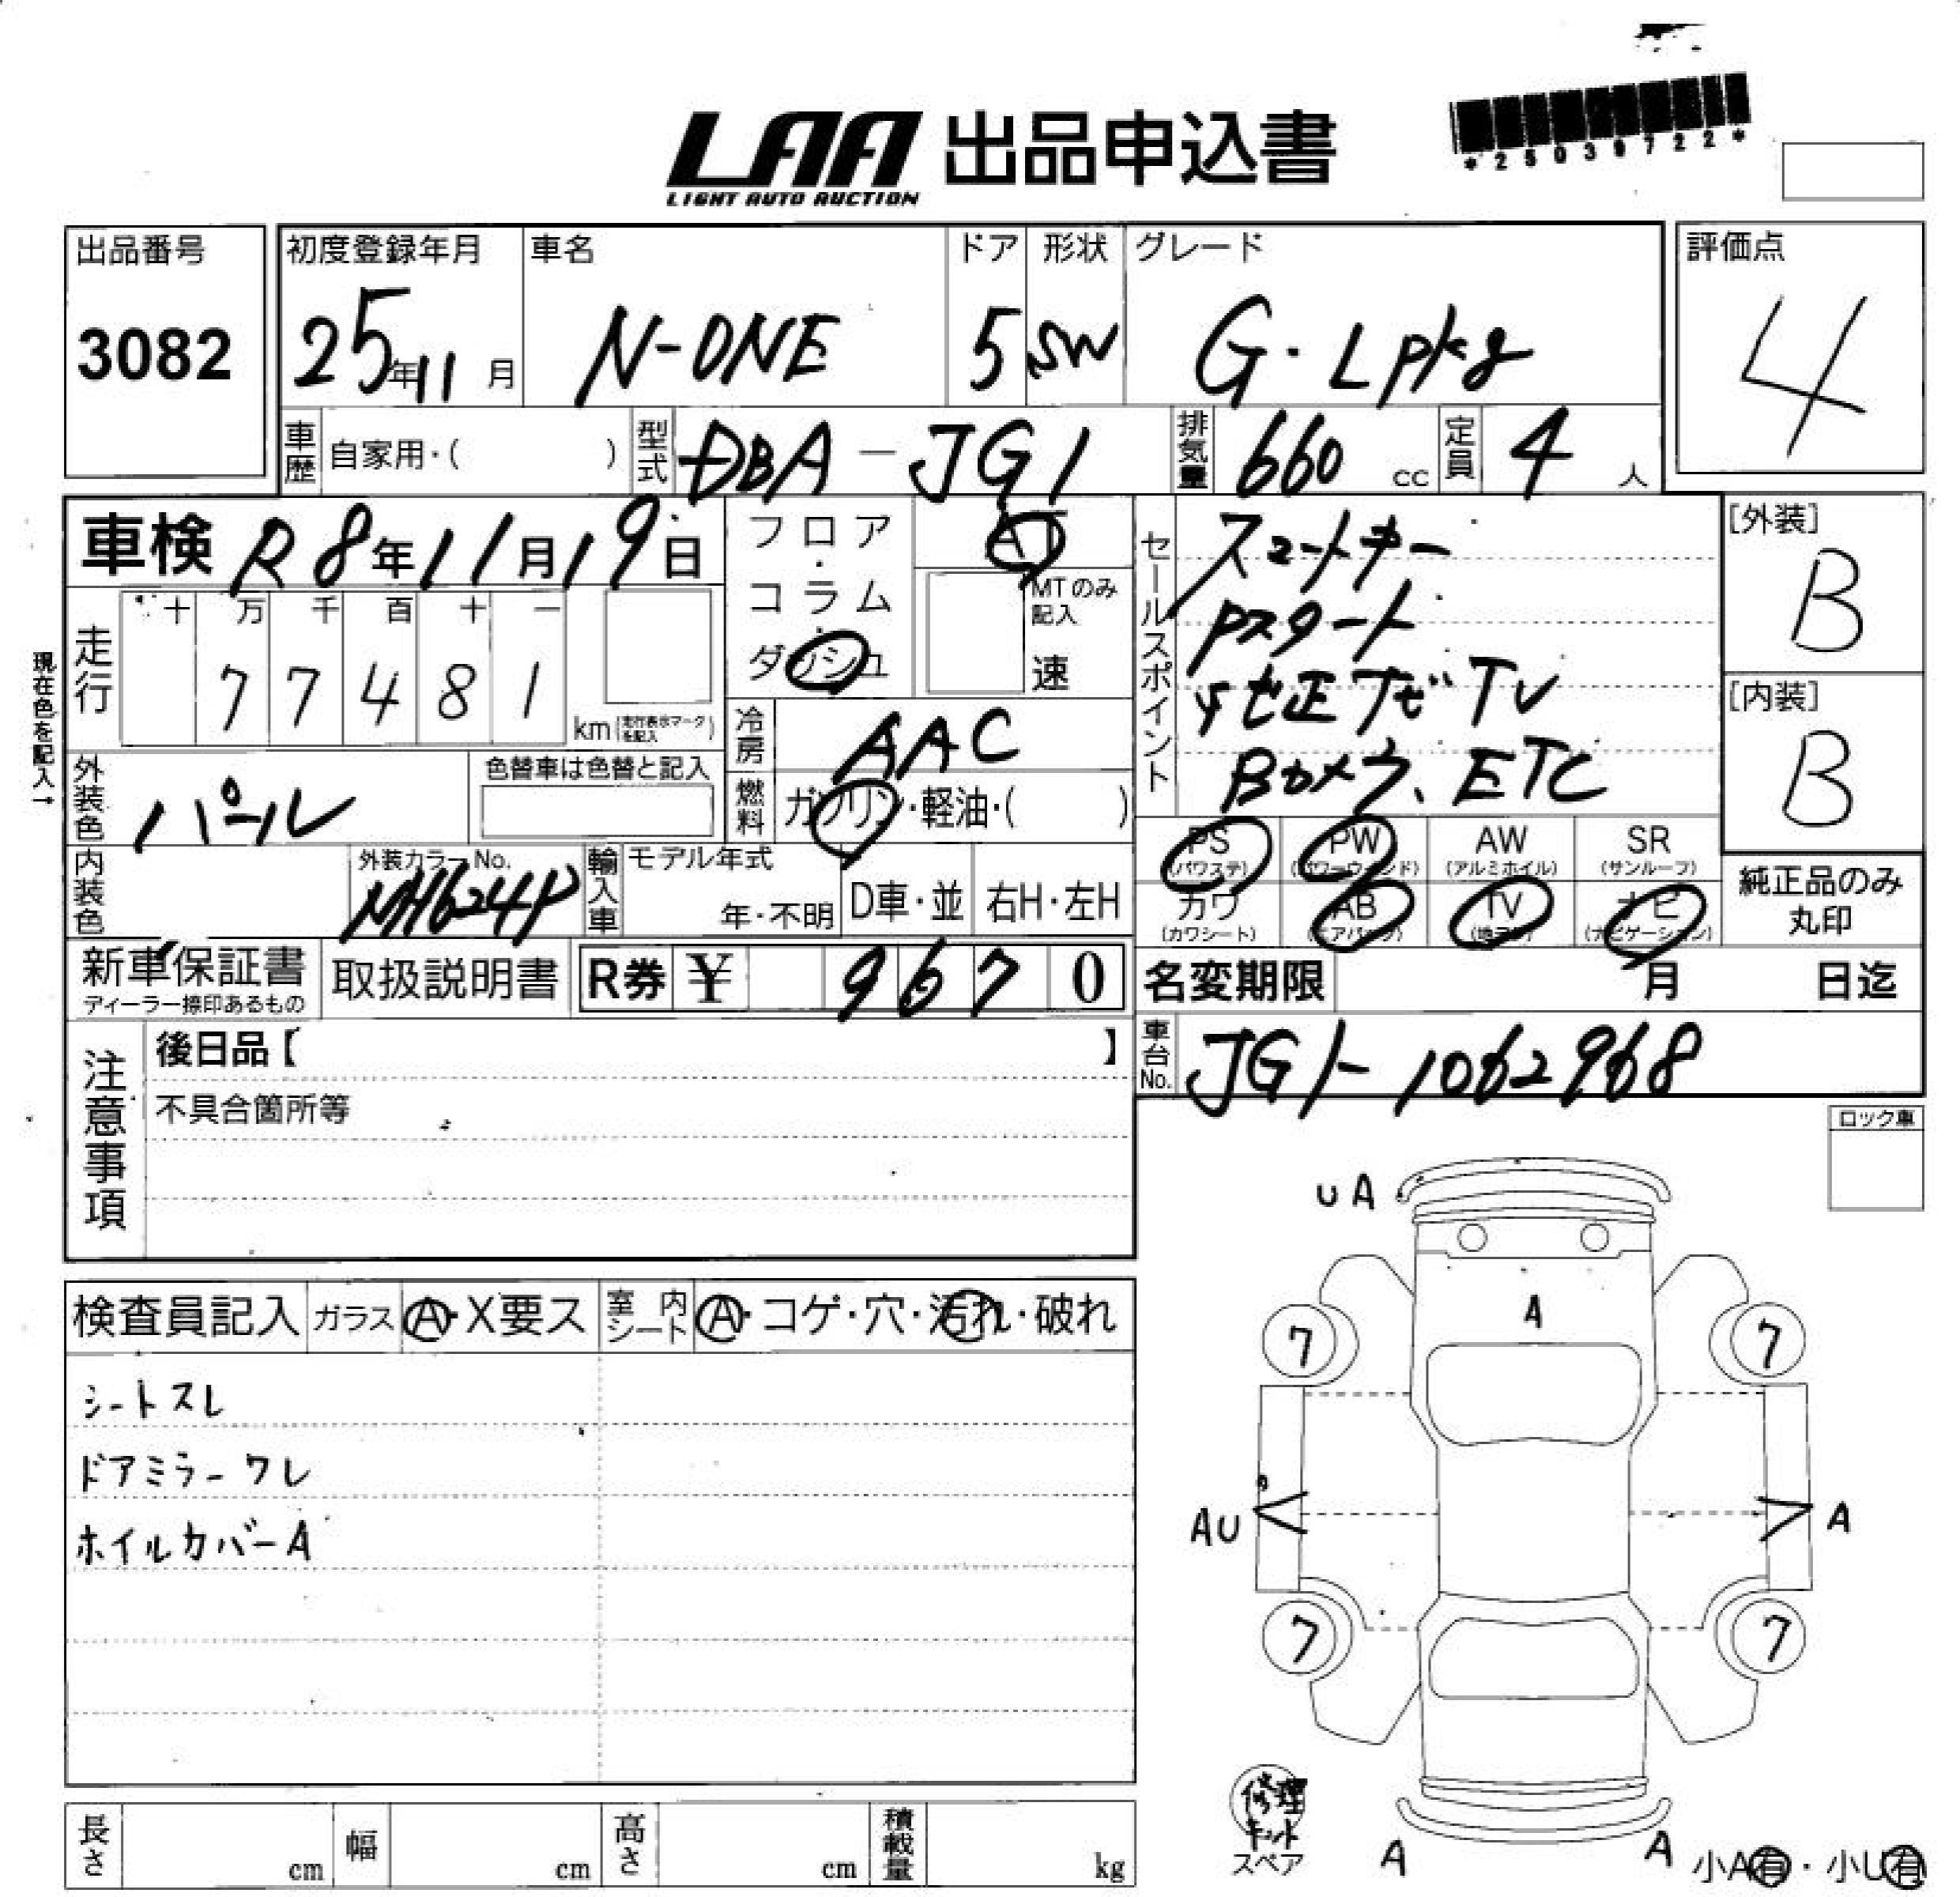 LAA 出品申込書
LIGHT AUTO AUCTION
*25039722*
出品番号
3082
初度登録年月
25年11月
車名
N-ONE
ドア
5
形状
SW
グレード
G・Lpkg
評価点
4
車歴 自家用・( )
型式 DBA-JG1
排気量 660 cc
定員 4 人
車検 R8年11月19日
フロア・コラム・ダッシュ
AT
MTのみ記入
速
セールスポイント
スマートキー
Pスタート
純正ナビTV
Bカメラ、ETC
[外装]
B
[内装]
B
現在色を記入→
走行
十 万 千 百 十 一
77481
km(走行表示マークを記入)
冷房 AAC
燃料 ガソリン・軽油・( )
外装色 パール
色替車は色替と記入
内装色
外装カラーNo.
NH624P
輸入車
モデル年式
年・不明
D車・並
右H・左H
PS
(パワステ)
PW
(パワーウィンド)
AW
(アルミホイル)
SR
(サンルーフ)
カワ
(カワシート)
AB
(エアバッグ)
TV
(地デジ)
ナビ
(ナビゲーション)
純正品のみ
丸印
新車保証書
ディーラー捺印あるもの
取扱説明書
R券 ¥ 9670
名変期限 月 日迄
車台No. JG1-1062968
注意事項
後日品【 】
不具合箇所等
ロック車
検査員記入
ガラス A・X要ス
室内シート A・コゲ・穴・汚れ・破れ
シートスレ
ドアミラーワレ
ホイルカバーA
UA
A
7
7
AU
A
7
7
修理キット
スペア
A
A
小A有・小U有
長さ cm
幅 cm
高さ cm
積載量 kg